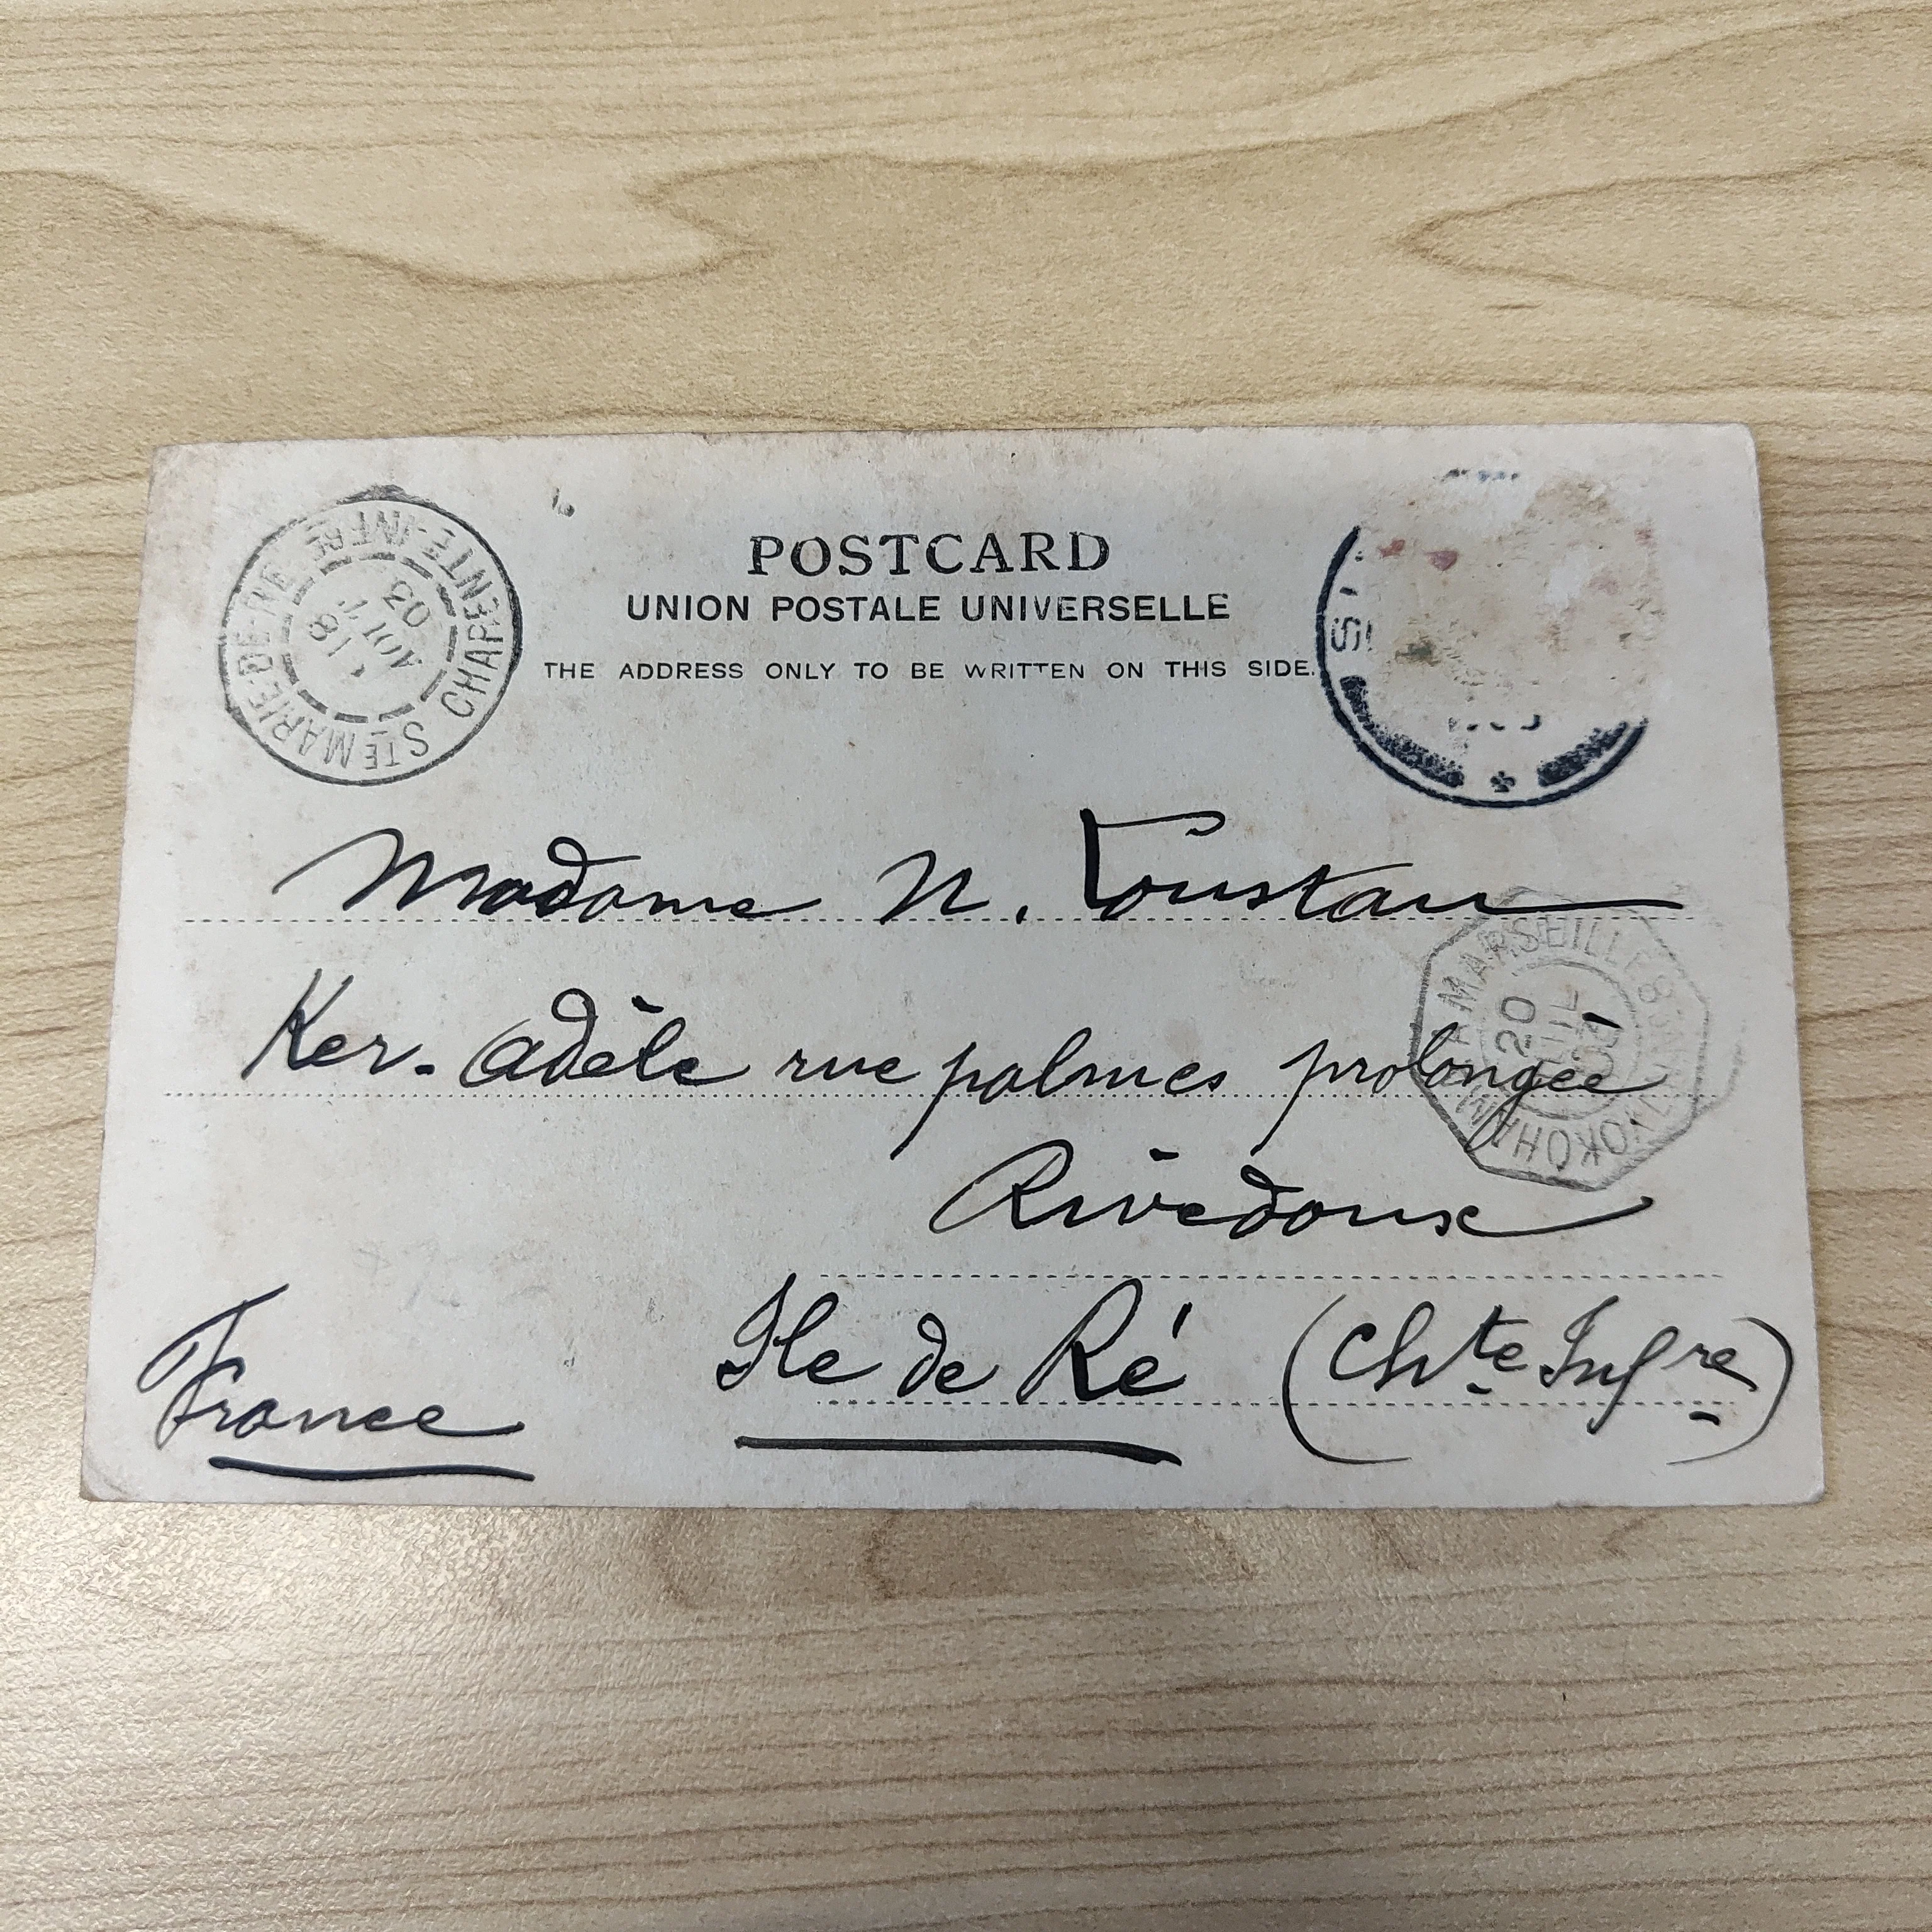 POSTCARD
UNION POSTALE UNIVERSELLE
THE ADDRESS ONLY TO BE WRITTEN ON THIS SIDE.
STE MARIE-DE-RE CHARENTE-INFRE
AOUT
03
Madame N. Toustau
Ker-Adèle rue palmes prolongée
Rivedoux
Ile de Ré (Chte Infre)
France
MARSEILLE
20
JUIL
YOKOHAMA